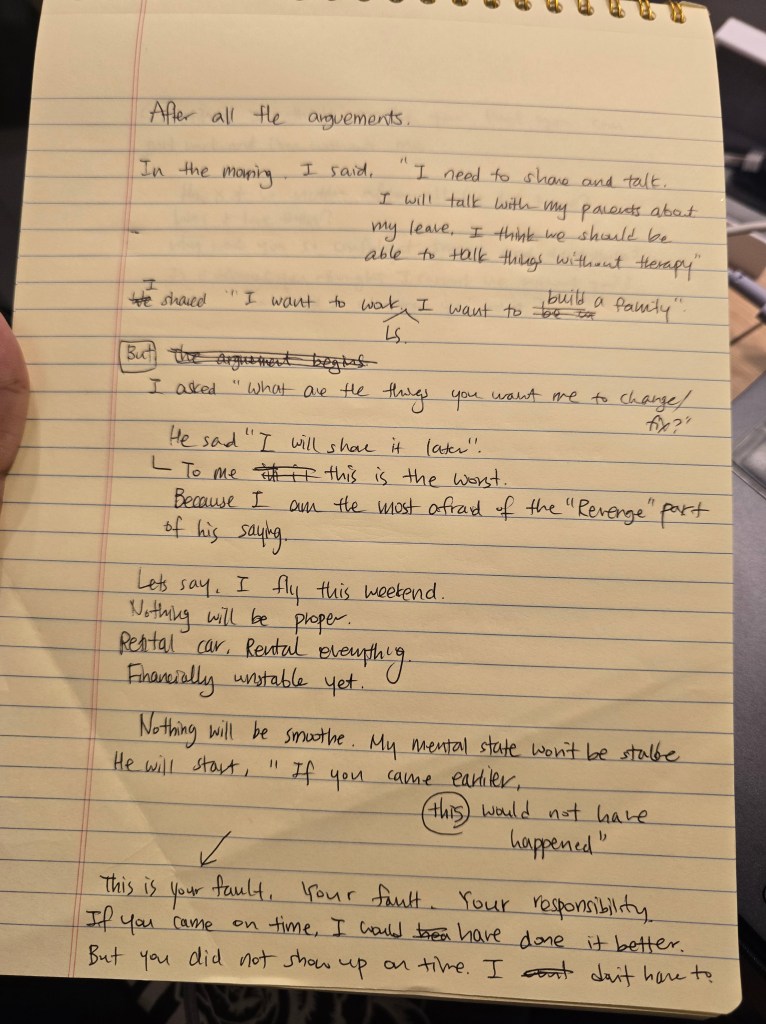 After all the arguements.
In the morning. I said. "I need to share and talk.
I will talk with my parents about
my leave. I think we should be
able to talk things without therapy"
We I shared "I want to work, I want to be build a family".
LS.
But the argument begins
I asked "What are the things you want me to change/
fix?"
He said "I will share it later".
To me this is the worst.
Because I am the most afraid of the "Revenge" part
of his saying.
Lets say. I fly this weekend.
Nothing will be proper.
Rental car. Rental everything.
Financially unstable yet.
Nothing will be smoothe. My mental state won't be stalbe
He will start, "If you came earilier,
this would not have
happened"
This is your fault. Your fault. Your responsibility.
If you came on time, I would have done it better.
But you did not show up on time. I don't have to